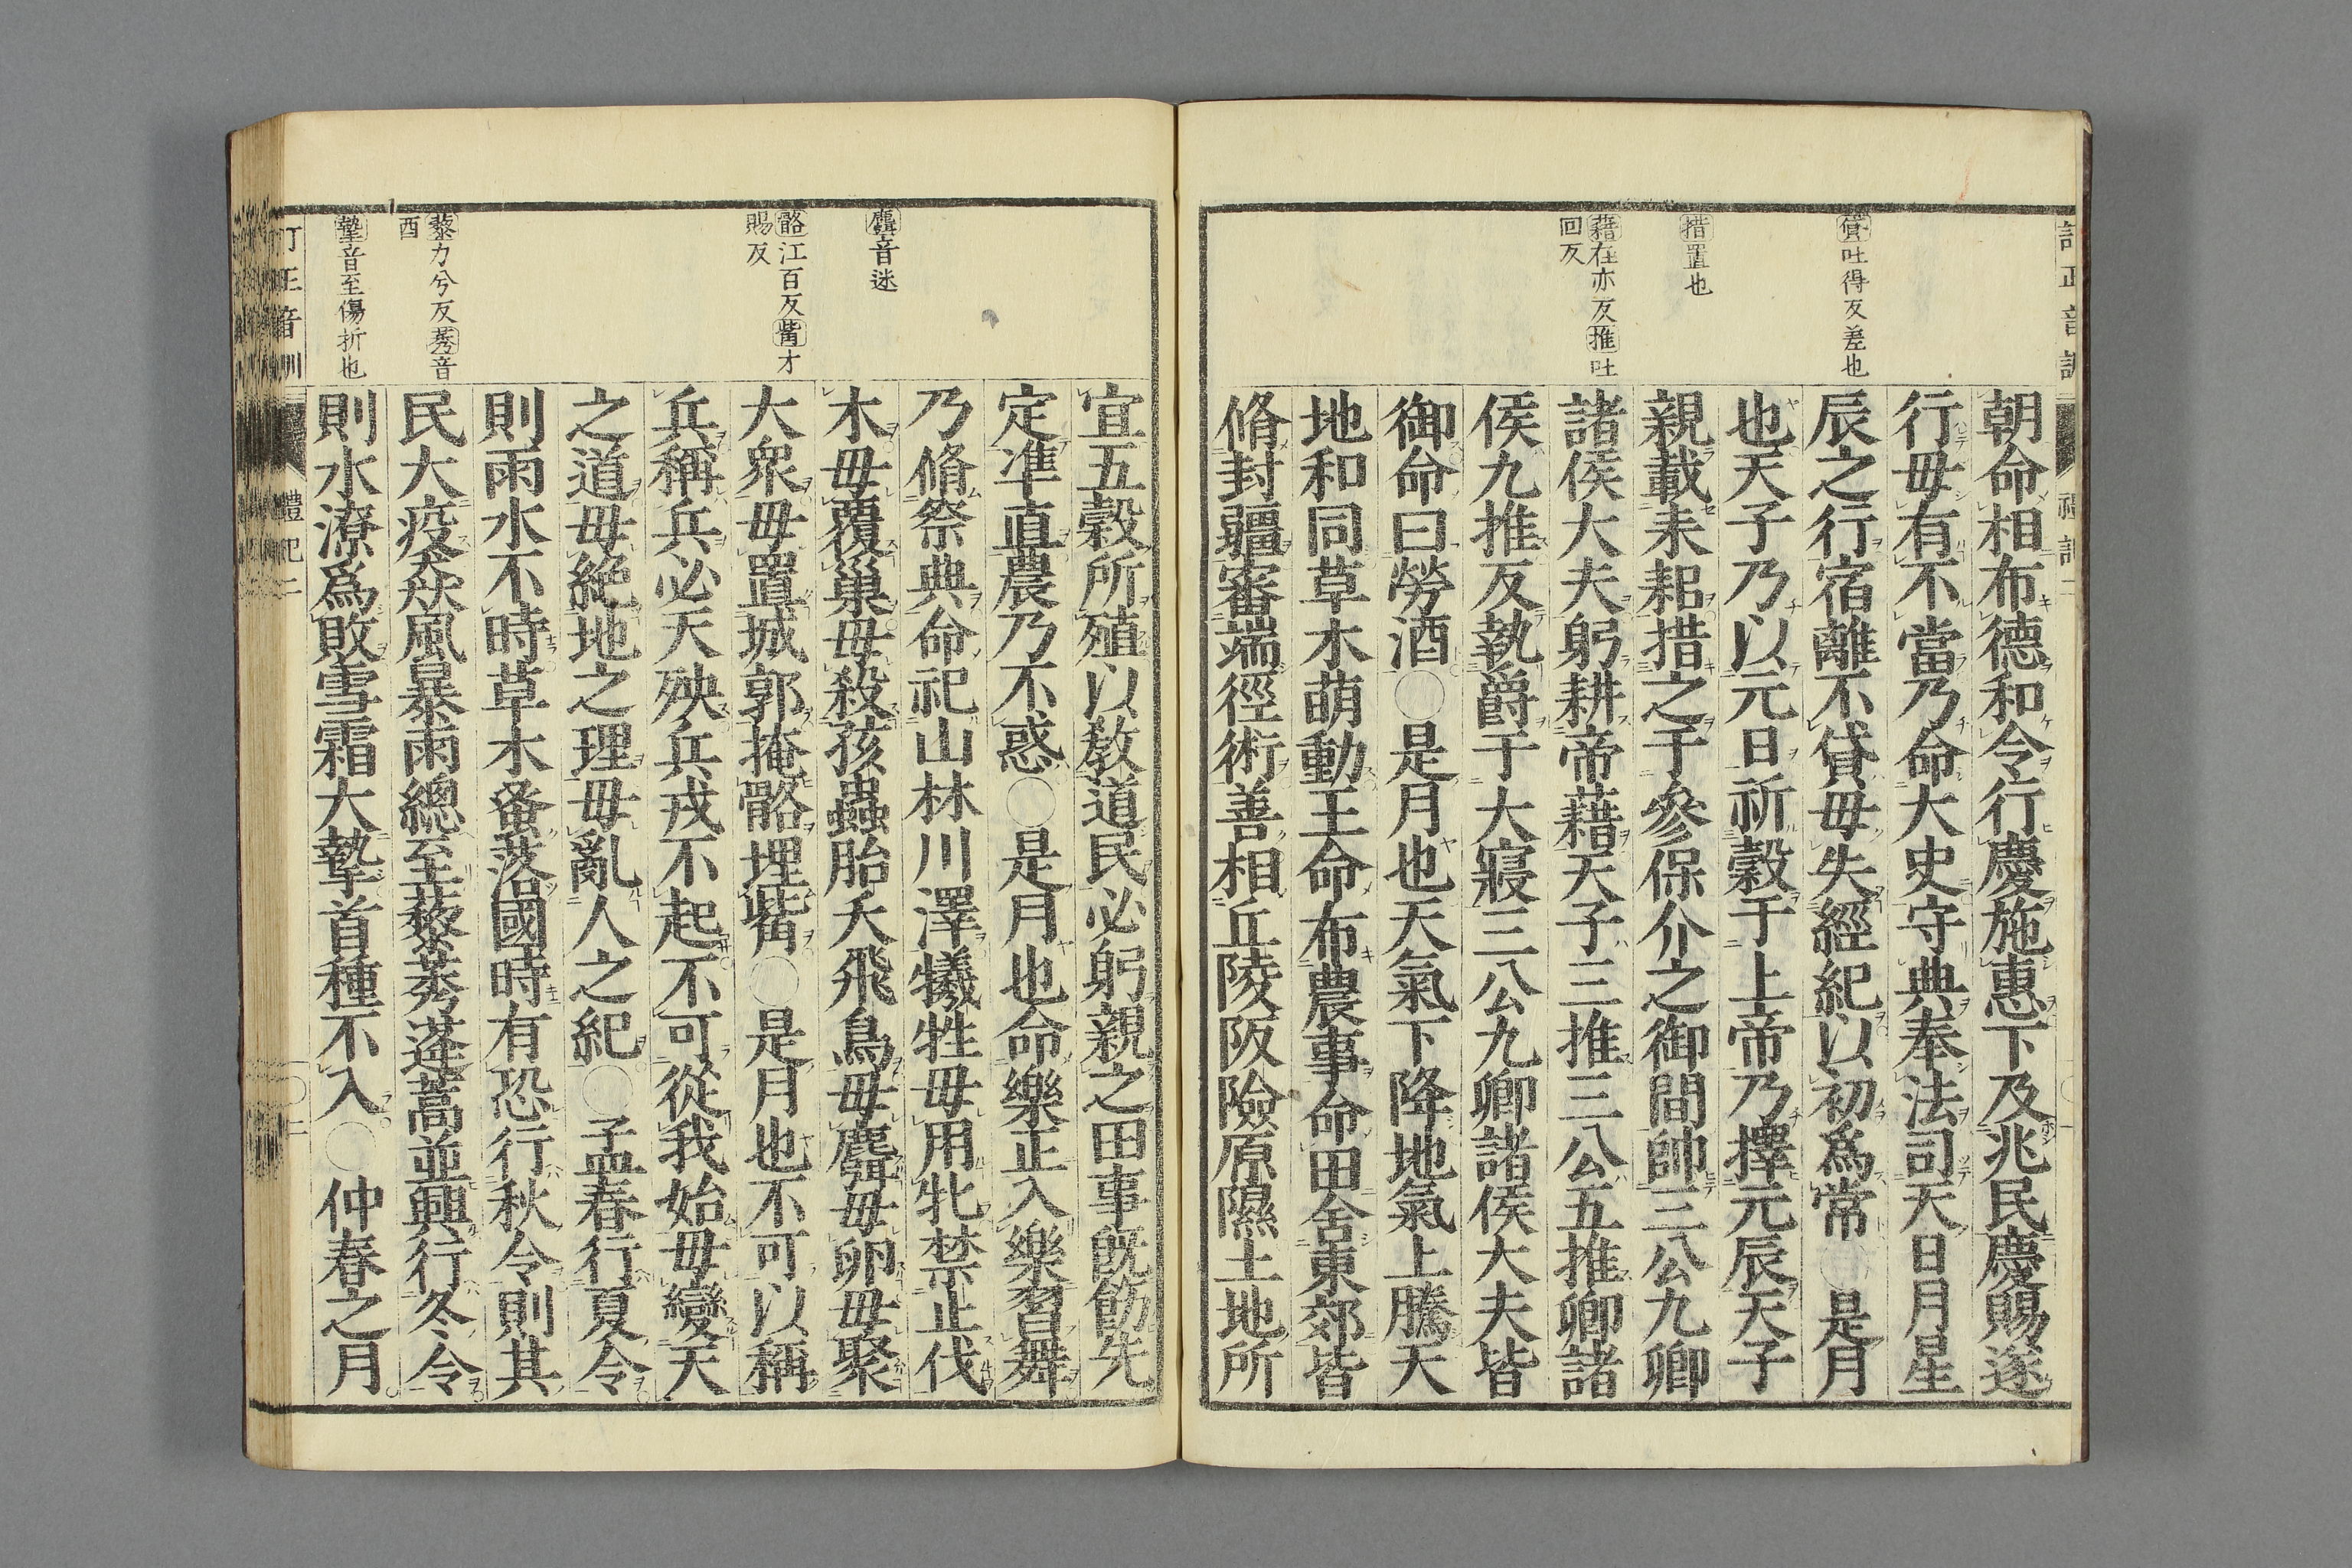 訂正音訓
禮記二
貸吐得反差也
措置也
藉在亦反推吐
回反
朝命相布德和令行慶施惠下及兆民慶賜遂
行毋有不當乃命大史守典奉法司天日月星
辰之行宿離不貸毋失經紀以初爲常〇是月
也天子乃以元日祈穀于上帝乃擇元辰天子
親載耒耜措之于參保介之御間帥三公九卿
諸侯大夫躬耕帝藉天子三推三公五推卿諸
侯九推反執爵于大寢三公九卿諸侯大夫皆
御命曰勞酒〇是月也天氣下降地氣上騰天
地和同草木萌動王命布農事命田舍東郊皆
脩封疆審端徑術善相丘陵阪險原隰土地所
麛音迷
骼江百反胔才
賜反
藜力兮反莠音
酉
摯音至傷折也
宜五穀所殖以敎道民必躬親之田事既飭先
定準直農乃不惑〇是月也命樂正入樂習舞
乃脩祭典命祀山林川澤犧牲毋用牝禁止伐
木毋覆巢毋殺孩蟲胎夭飛鳥毋麛毋卵毋聚
大衆毋置城郭掩骼埋胔〇是月也不可以稱
兵稱兵必天殃兵戎不起不可從我始毋變天
之道毋絕地之理毋亂人之紀〇孟春行夏令
則雨水不時草木蚤落國時有恐行秋令則其
民大疫猋風暴雨總至藜莠蓬蒿並興行冬令
則水潦爲敗雪霜大摯首種不入〇仲春之月
訂正音訓
禮記二
〇二